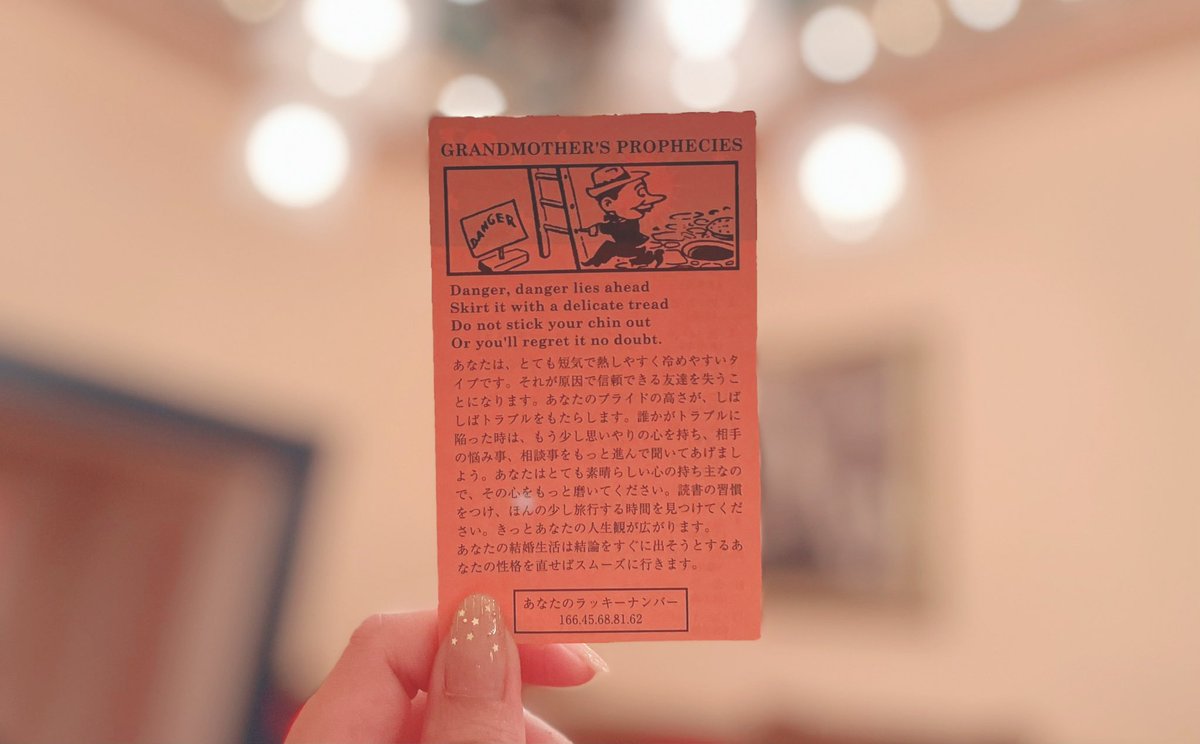 GRANDMOTHER'S PROPHECIES
DANGER
Danger, danger lies ahead
Skirt it with a delicate tread
Do not stick your chin out
Or you'll regret it no doubt.
あなたは、とても短気で熱しやすく冷めやすいタ
イプです。それが原因で信頼できる友達を失うこ
とになります。あなたのプライドの高さが、しば
しばトラブルをもたらします。誰かがトラブルに
陥った時は、もう少し思いやりの心を持ち、相手
の悩み事、相談事をもっと進んで聞いてあげまし
ょう。あなたはとても素晴らしい心の持ち主なの
で、その心をもっと磨いてください。読書の習慣
をつけ、ほんの少し旅行する時間を見つけてくだ
さい。きっとあなたの人生観が広がります。
あなたの結婚生活は結論をすぐに出そうとするあ
なたの性格を直せばスムーズに行きます。
あなたのラッキーナンバー
166.45.68.81.62